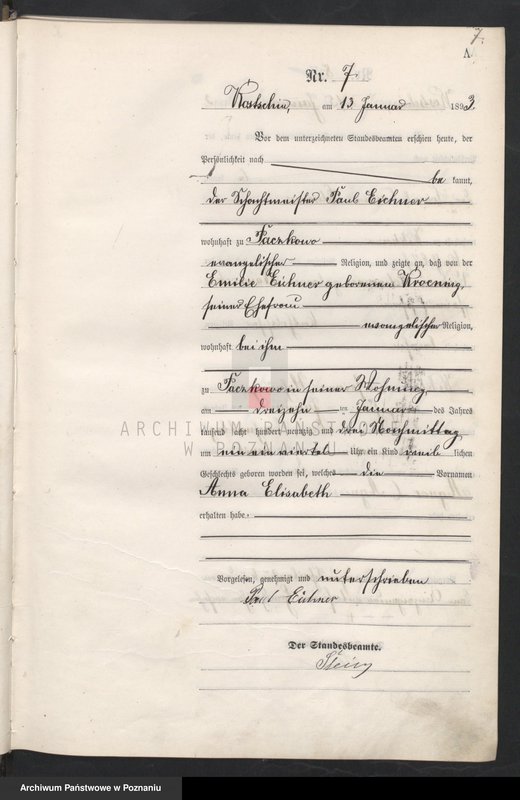 7.
A
Nr. 7.
Kostschin, am 13 Januar 1893
Vor dem unterzeichneten Standesbeamten erschien heute, der
Persönlichkeit nach
be kannt,
der Schachtmeister Paul Eichner
wohnhaft zu Paczkowo
evangelischer Religion, und zeigte an, daß von der
Emilie Eichner geborenen Kroening,
seiner Ehefrau
evangelischer Religion,
wohnhaft bei ihm
zu Paczkowo in seiner Wohnung,
am dreizehn ten Januar des Jahres
tausend acht hundert neunzig und drei Nachmittag
um ein ein viertel Uhr ein Kind weib lichen
Geschlechts geboren worden sei, welches die Vornamen
Anna Elisabeth
erhalten habe.
ARCHIWUM PAŃSTWOWE
W POZNANIU
Vorgelesen, genehmigt und unterschrieben
Paul Eichner
Der Standesbeamte.
Archiwum Państwowe w Poznaniu